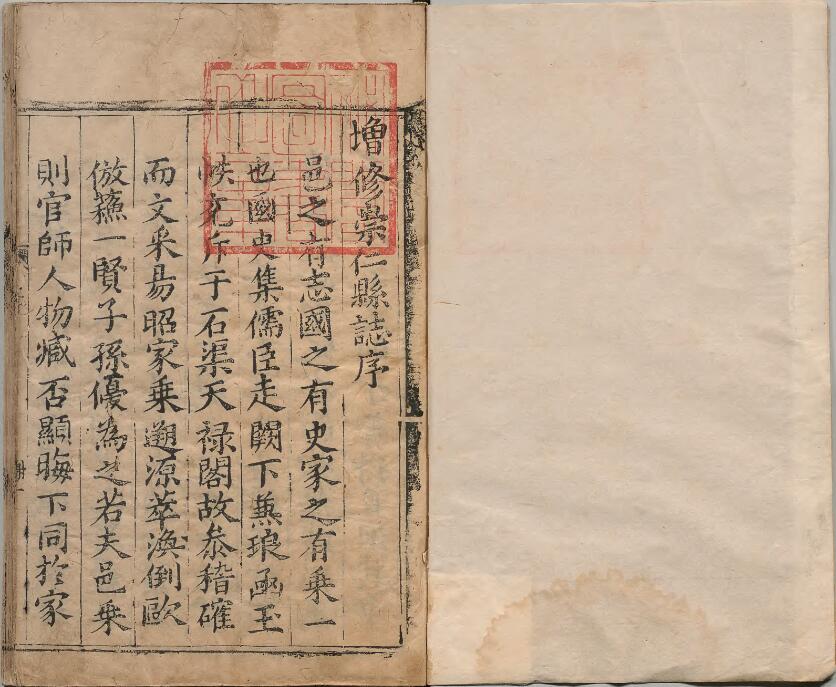 增修崇仁縣誌序
邑之有志國之有史家之有乗一
也國史集儒臣走闕下兼琅函玉
帙充斥于石渠天禄閣故叅稽確
而文采易昭家乗遡源萃渙倒歐
倣蘓一賢子孫優為之若夫邑乗
則官師人物臧否顯晦下同於家